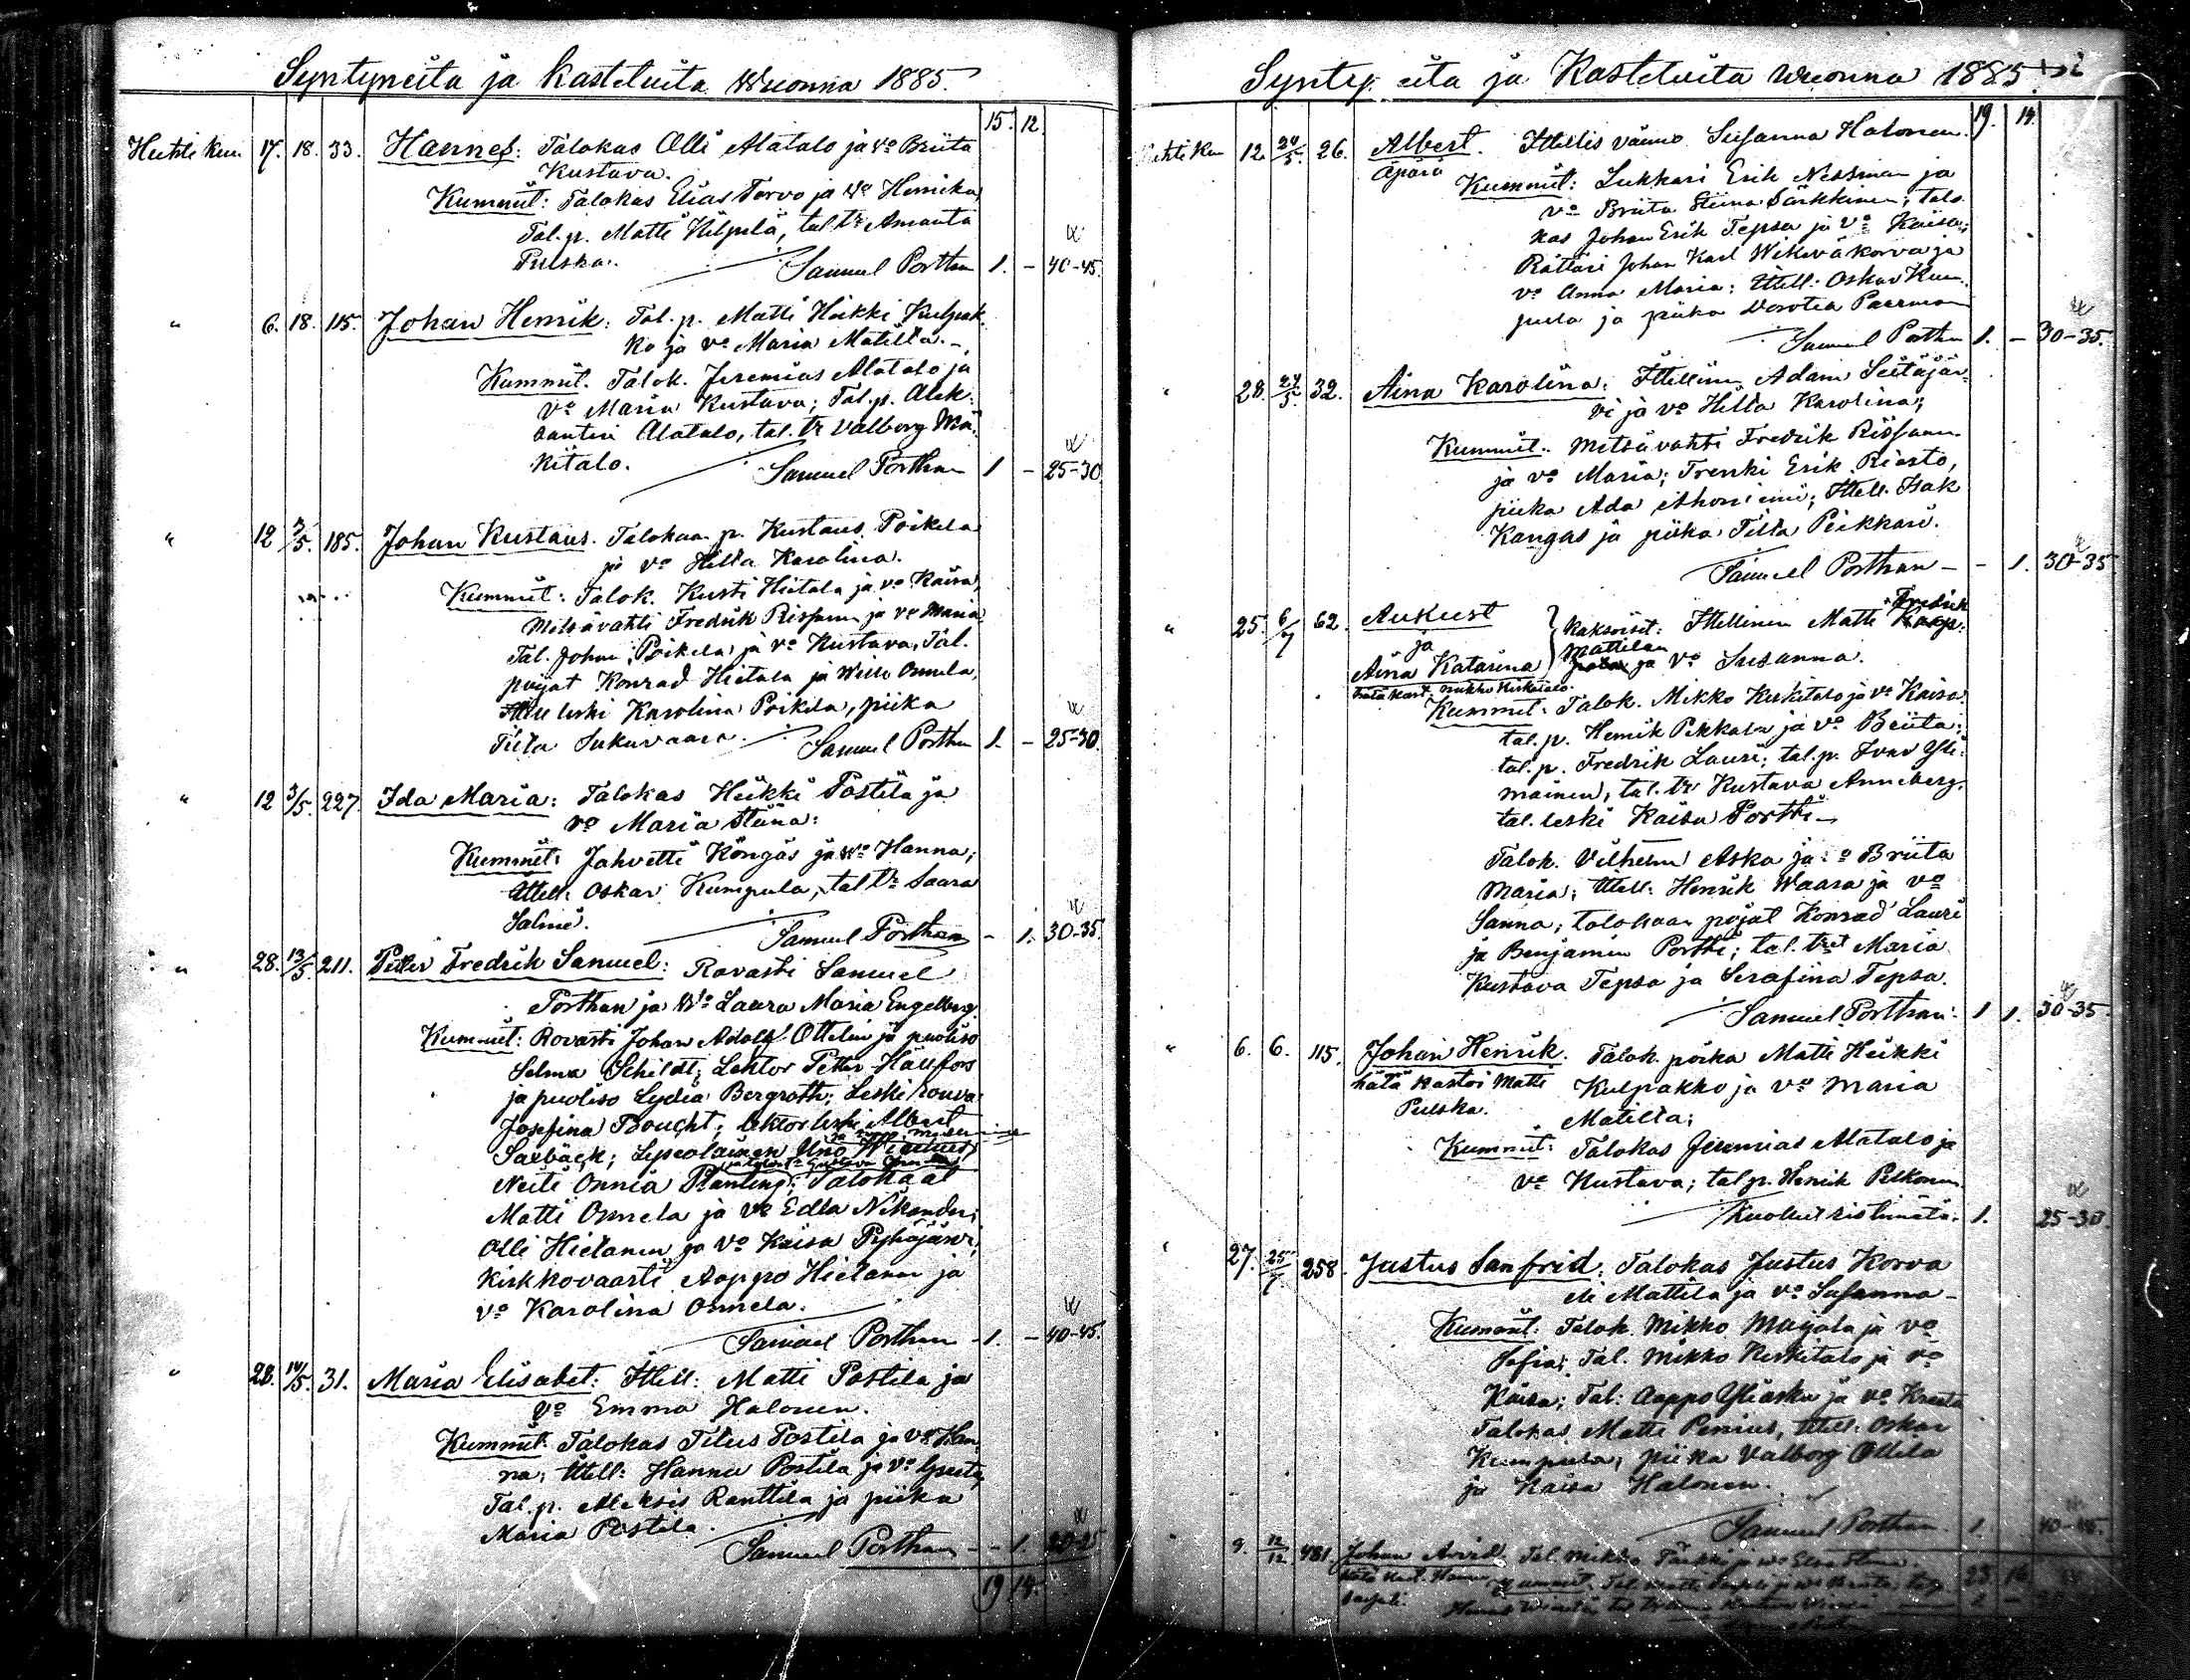 Syntyneitä ja kasteluita Wuonna 1885.
15. 12.
Huhti kuu. 17. 18. 33. Hannes: Talokas Olli Alatalo ja vo Briita
Kustava.
Kummit: Talokas Elias Torvo ja Wo Henrika,
Tal. p. Matti Hilpelä, tal tr Amanta
Pulska.
Samuel Porthan 1. - 40-45.
" 6. 18. 115. Johan Henrik: Tal. p. Matti Heikki Kulpak
ko ja vo Maria Matilta.
Kummit. Talok. Jeremias Alatalo ja
vo Maria Kustava; Tal. p. Alek-
santeri Alatalo, tal. tr Valborg Mä-
kitalo.
Samuel Porthan 1 - 25-30
" 12 3/5. 185. Johan Kustaus. Talokaan p. Kustaus Poikela
ja vo Hilta Karolina.
Kummit: Talok. Kusti Hietala ja vo Kaisa,
Metsävahti Fredrik Rissanen ja vo Maria
Tal. Johan Poikela ja vo Kustava, Tal.
pojat Konrad Hietala ja Wille Onnela,
Ittell leski Karolina Poikela, piika
Tilta Sukuvaara. Samuel Porthan 1. - 25-30.
" 12 3/5. 227. Ida Maria: Talokas Heikki Postila ja
vo Maria Stiina:
Kummit: Jahvetti Köngäs ja Wo Hanna;
Ittell: Oskar Kumpula, tal tr Saara
Salmi.
Samuel Porthan - 1. 30-35.
" 28. 13/5. 211. Petter Fredrik Samuel: Rovasti Samuel
Porthan ja Wo Laura Maria Engelberg.
Kummit: Rovasti Johan Adolf Ottelin ja puoliso
Selma Schildt; Lektor Petter Hällfors
ja puoliso Lydia Bergroth; Leski rouva
Josfina Boucht; lektor leski Albert
Salbäck; Lyseolainen Uno
Neiti Onnia Planting; Talokaat
Matti Onnela ja vo Edla Nikander;
Olli Hietanen ja vo Kaisa Pyhäjärvi,
Kirkkovaarti Aappo Hietanen ja
vo Karolina Onnela.
Samuel Porthan - 1. - 40-45.
" 28. 14/5. 31. Maria Elisabet: Ittell: Matti Postila ja
vo Emma Halonen.
Kummit: Talokas Titus Postila ja vo Han
na; Ittell: Hannu Postila ja vo Greeta,
Tal. p. Aleksis Ranttila ja piika
Maria Postila.
Samuel Porthan - - 1. 20-25
19 14.
Synty eitä ja Kasteluita Wuonna 1885.
19. 14.
Huhti kuu 12. 24/5. 26. Albert. Ittellis vaimo Susanna Halonen.
Äpärä
Kummit: Lukkari Erik Nessman ja
vo Briita Stiina Särkkinen; talo
kas Johan Erik Tepsa ja vo Kaisa;
Rättäri Johan Karl Wikeväkorva ja
vo Anna Maria: Ittell: Oskar Kum-
pula ja piika Dorotea Paarman
Samuel Porthan 1. - 30-35.
" 28. 24/5. 32. Aina Karolina: Ittellinen Adam Seitajär-
vi ja vo Hilta Karolina;
Kummit: Metsävahti Fredrik Rissanen
ja vo Maria; Trenki Erik Riesto,
piika Ada Ahoniemi; Ittell. Isak
Kangas ja piika Tilta Peikkari.
Samuel Porthan - - 1. 30-35
" 25. 6/7 62. Aukust
ja
Aina Katarina
hätä kast. Mikko Keskitalo.
Kaksoiset: Ittellinen Matti Fredrik
Mattilan ja vo Susanna.
Kummit: Talok. Mikko Keskitalo ja vo Kaisa.
tal. p. Henrik Pekkala ja vo Briita;
tal. p. Fredrik Lauri; tal. p. Ivar Yli-
mäinen, tal. tr Kustava Anneberg,
tal. leski Kaisa Portti -
Talok. Vilhelm Aska ja vo Briita
Maria; Ittell: Henrik Waara ja vo
Sanna; talokaan pojat Konrad Lauri
ja Benjamin Portti; tal. tret Maria
Kustava Tepsa ja Serafina Tepsa.
Samuel Porthan. 1 1. 30-35.
" 6. 6. 115. Johan Henrik. Talok. poika Matti Heikki
hätä kastoi Matti Kulpakko ja vo Maria
Pulska. Matilta;
Kummit: Talokas Jeremias Alatalo ja
vo Kustava; tal p. Henrik Pelkonen
Kuollut ristimätä. 1. 25-30
" 27. 25/7 258. Justus Sanfrid: Talokas Justus Korva
eli Mattila ja vo Susanna -
Kummit: Talok. Mikko Maijala ja vo
Sofia; Tal. Mikko Keskitalo ja vo
Kaisa; Tal: Aappo Yliaska ja vo Kreeta
Talokas Matti Penius, Ittell: Oskar
Kumpula, piika Valborg Ollila
ja Kaisa Halonen.
Samuel Porthan. 1. 40-45.
" 9. 12/12. 481. Johan Arvid Tal. Mikko
hätä kast. Hannu Kummit: Tal. Matti
23 16